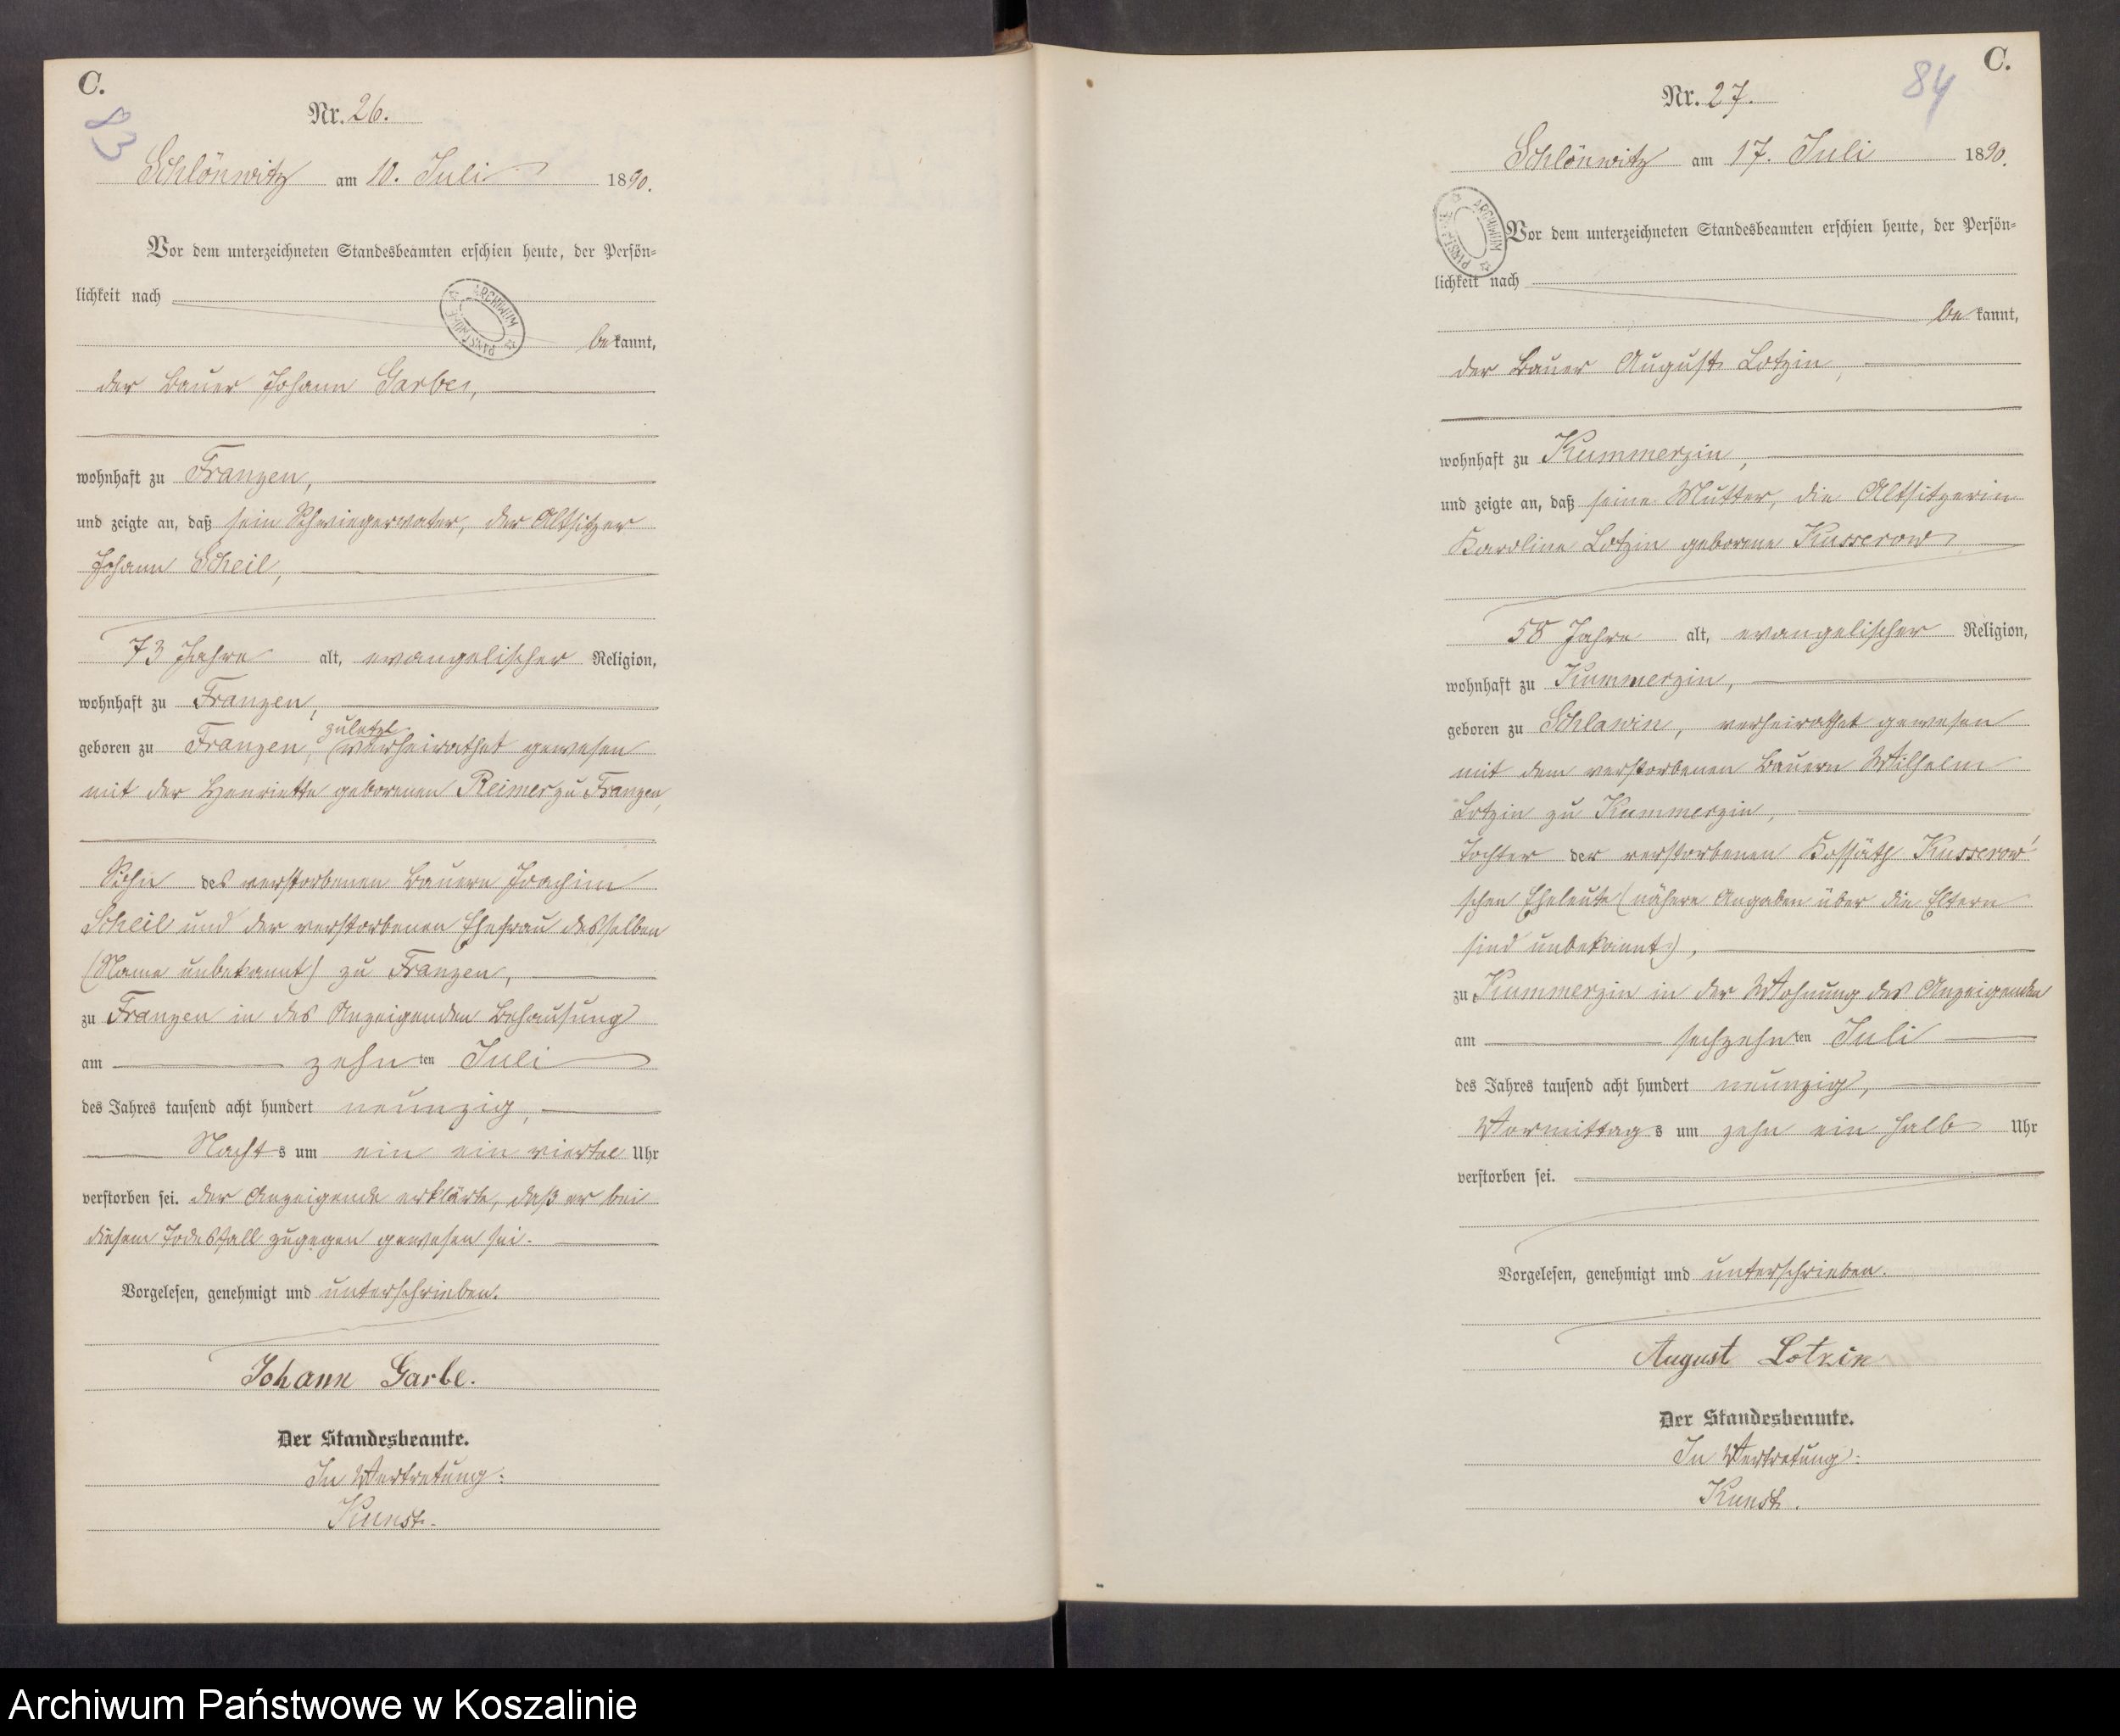 C.
83
Nr. 26.
Schlönwitz am 10. Juli 1890.
Vor dem unterzeichneten Standesbeamten erschien heute, der Persön-
lichkeit nach
ARCHIWUM PAŃSTWOWE
bekannt,
der Bauer Johann Garbe,
wohnhaft zu Franzen,
und zeigte an, daß sein Schwiegervater, der Altsitzer
Johann Scheil,
73 Jahre alt, evangelischer Religion,
wohnhaft zu Franzen,
zuletzt
geboren zu Franzen, verheirathet gewesen
mit der Henriette geborenen Reimer zu Franzen,
Sohn des verstorbenen Bauern Joachim
Scheil und der verstorbenen Ehefrau desselben
(Name unbekannt) zu Franzen,
zu Franzen in des Anzeigenden Behausung
am zehnten Juli
des Jahres tausend acht hundert neunzig,
Nachts um ein ein viertel Uhr
verstorben sei. der Anzeigende erklärte, daß er bei
diesem Todesfall zugegen gewesen sei.
Vorgelesen, genehmigt und unterschrieben.
Johann Garbe.
Der Standesbeamte.
In Vertretung:
Kunst.
C.
84
Nr. 27.
Schlönwitz am 17. Juli 1890.
ARCHIWUM PAŃSTWOWE
Vor dem unterzeichneten Standesbeamten erschien heute, der Persön-
lichkeit nach
bekannt,
der Bauer August Lotzin,
wohnhaft zu Kummerzin,
und zeigte an, daß seine Mutter, die Altsitzerin
Karoline Lotzin geborene Kusserow
58 Jahre alt, evangelischer Religion,
wohnhaft zu Kummerzin,
geboren zu Schlawin, verheirathet gewesen
mit dem verstorbenen Bauern Wilhelm
Lotzin zu Kummerzin,
Tochter der verstorbenen Kossäth Kusserow'
schen Eheleute (nähere Angaben über die Eltern
sind unbekannt),
zu Kummerzin in der Wohnung des Anzeigenden
am sechzehnten Juli
des Jahres tausend acht hundert neunzig,
Vormittags um zehn ein halb Uhr
verstorben sei.
Vorgelesen, genehmigt und unterschrieben.
August Lotzin
Der Standesbeamte.
In Vertretung:
Kunst.
Archiwum Państwowe w Koszalinie